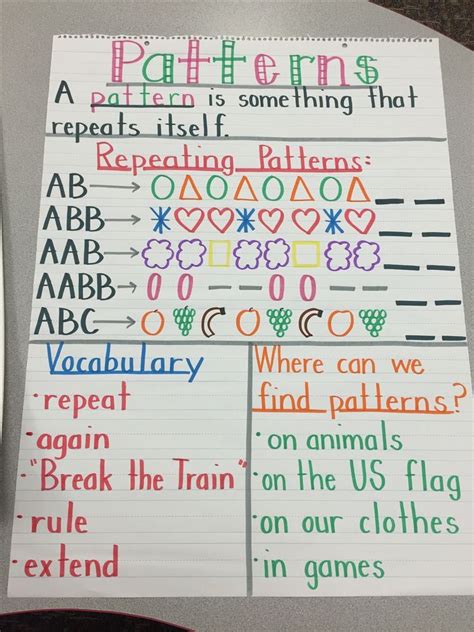 Patterns
A pattern is something that
repeats itself.
Repeating Patterns:
AB
ABB
AAB
AABB
ABC
Vocabulary
· repeat
· again
· "Break the Train"
· rule
· extend
Where can we
find patterns?
· on animals
· on the US flag
· on our clothes
· in games